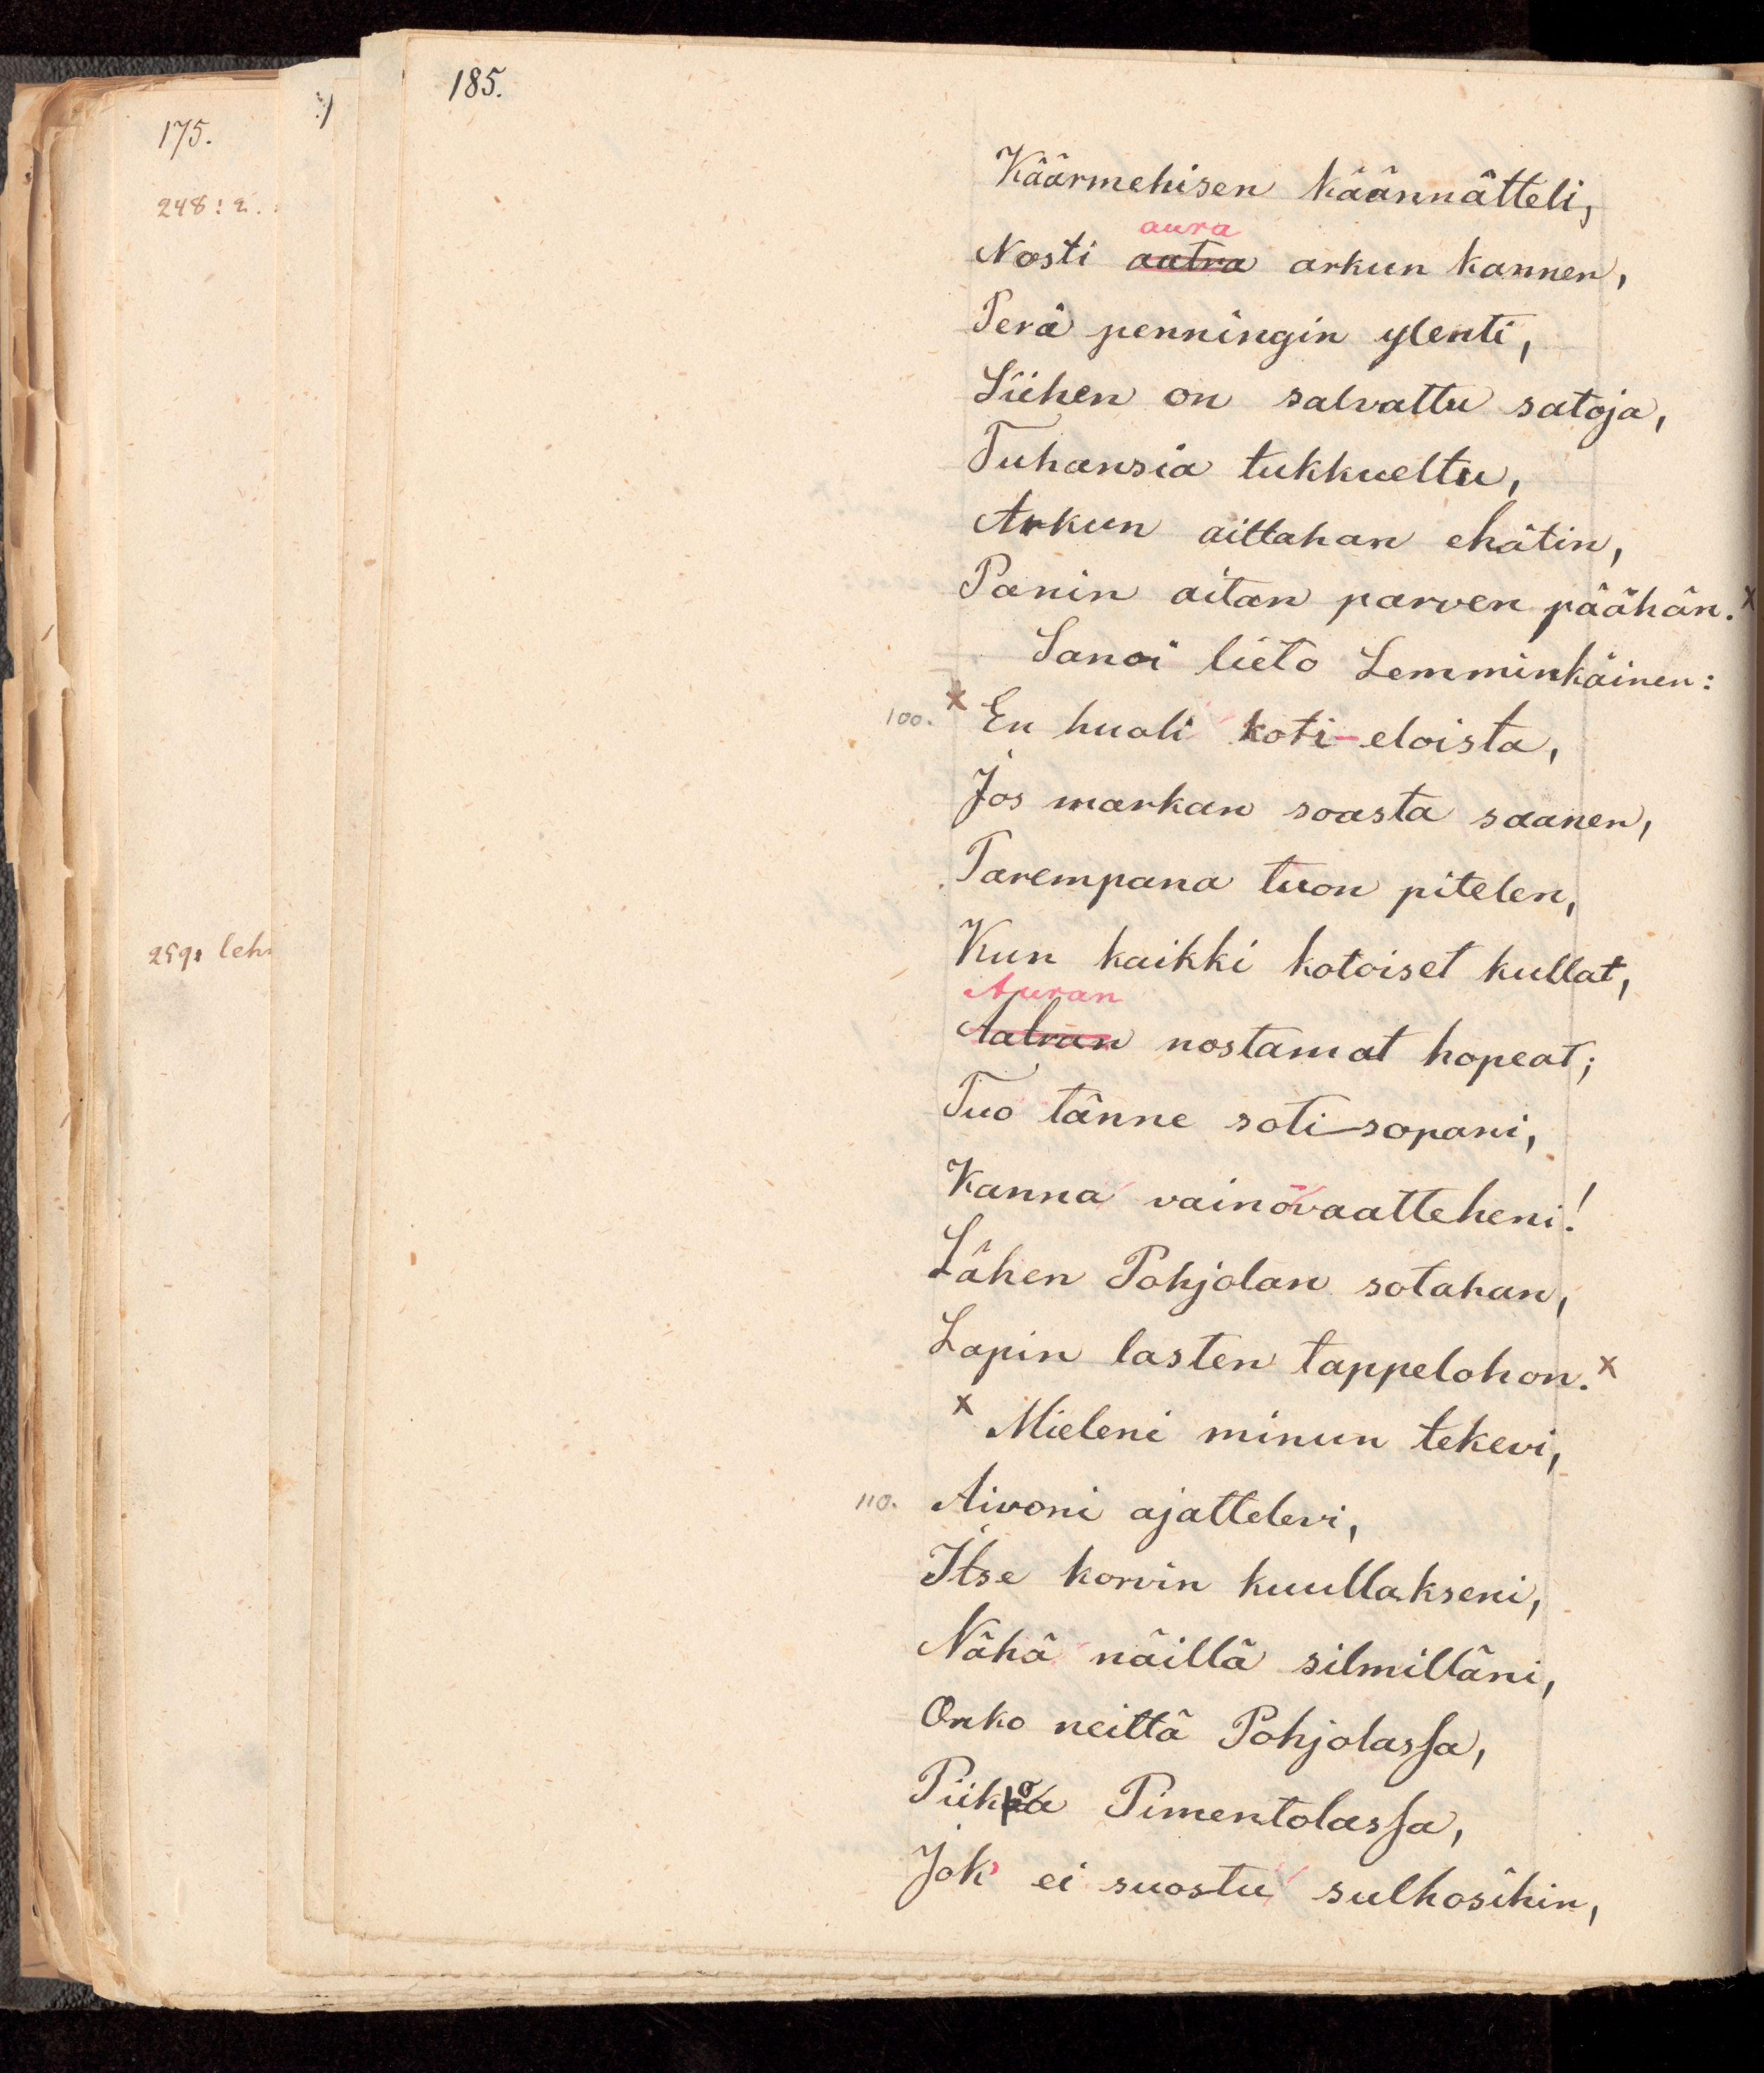 185.
175.
248: 2.
Käärmehisen käännätteli,
aura
Nosti aatra arkun kannen,
Perä penningin ylenti,
Siihen on salvattu satoja,
Tuhansia tukkueltu,
Arkun aittahan ehätin,
Panin aitan parven päähän. x
Sanoi lieto Lemminkäinen:
100. x En huoli koti-eloista,
Jos markan soasta saanen,
Parempana tuon pitelen,
Kun kaikki kotoiset kullat,
259: leh
Auran
Aatran nostamat hopeat;
Tuo tänne soti-sopani,
Kanna vainovaatteheni!
Lähen Pohjolan sotahan,
Lapin lasten tappelohon. x
x Mieleni minun tekevi,
110. Aivoni ajattelevi,
Itse korvin kuullakseni,
Nähä näillä silmilläni,
Onko neittä Pohjolassa,
Piikoa Pimentolassa,
Jok' ei suostu sulhosihin,